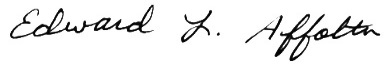 Edward L. Affolter